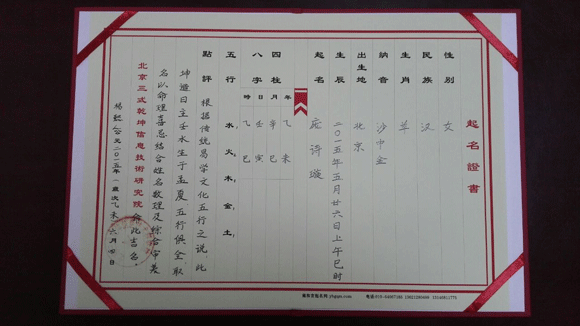 起名證書
性别 女
民族 汉
生肖 羊
納音 沙中金
出生地 北京
生辰 二〇一五年五月廿六日上午巳时
起名 庞诗璇
四柱八字
年 乙未
月 辛巳
日 壬寅
時 乙巳
五行 水，火，木，金，土，
點評 根据传统易学文化五行之说，此
坤造日主壬水生于孟夏，五行俱全，取
名以命理喜忌结合姓名数理及综合审美
北京三式乾坤信息技術研究院 命此吉名。
二〇一五年歲次乙未六月